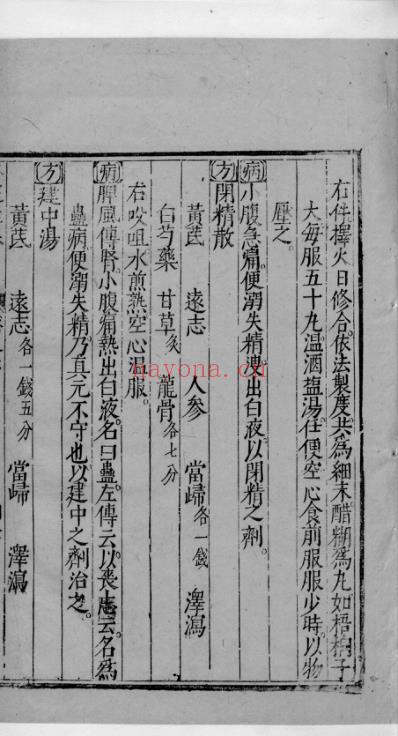 右件擇火日修合依法製度共為細末醋糊為丸如梧桐子
大每服五十丸温酒塩湯任便空心食前服服少時以物
壓之
病小腹急痛便溺失精溲出白液以閉精之劑
方閉精散
黃芪 遠志 人参 當歸各一錢 澤瀉
白芍藥 甘草炙 龍骨各七分
右㕮咀水煎熟空心温服
病脾風傳腎小腹痛熱出白液名曰蠱左傳云以喪志云名為
蠱病便溺失精乃真元不守也以建中之劑治之
方建中湯
黃芪 遠志各一錢五分 當歸 澤瀉
nayona.cn